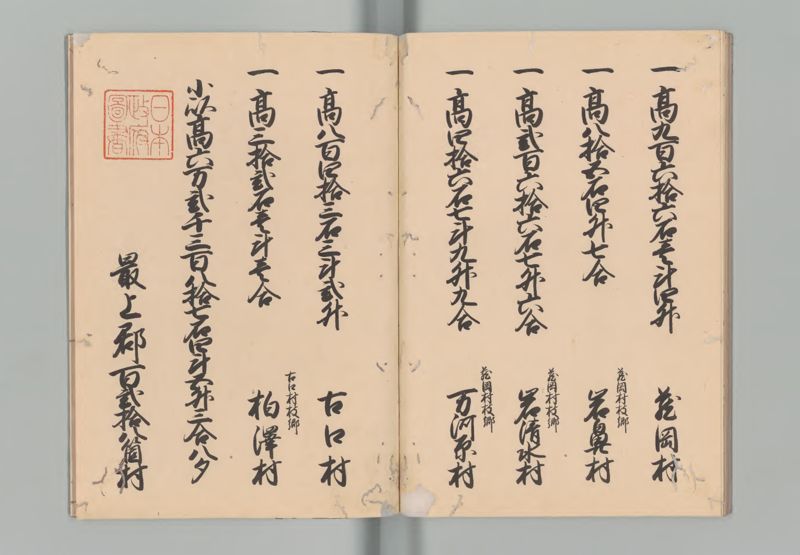 一高九百六拾六石壱斗四升
蔵岡村
一高八拾五石四升七合
蔵岡村枝郷
岩鼻村
一高弐百六拾六石七升六合
蔵岡村枝郷
岩清水村
一高四拾六石七斗九升九合
蔵岡村枝郷
万河原村
一高八百四拾三石三斗弐升
古口村
一高三拾弐石壱斗壱合
古口村枝郷
柏澤村
小以高六万弐千三百八拾七石四斗五升三合八夕
最上郡百弐拾八箇村
日本
政府
図書